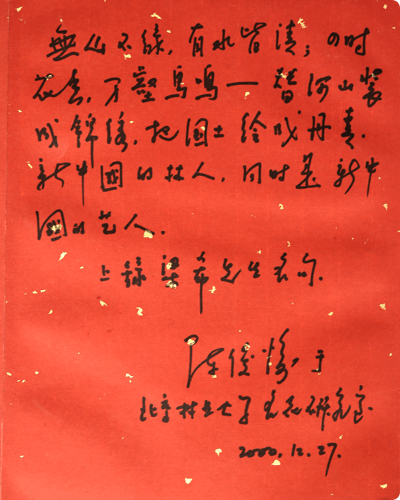 無山不綠，有水皆清；四时
花香，万壑鳥鳴——替河山裝
成錦绣，把國土绘成丹青.
新中國的林人，同时是新中
國的艺人.
上錄梁希先生名句.
陈俊愉 于
北京林业大学名花研究室
2000.12.27.